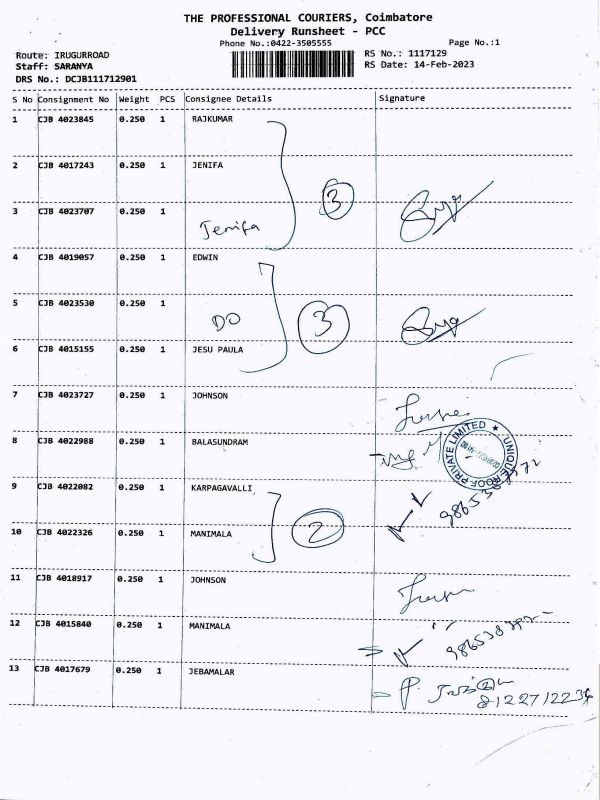 THE PROFESSIONAL COURIERS, Coimbatore
Delivery Runsheet - PCC
Phone No.:0422-3505555
Page No.:1
Route: IRUGURROAD
RS No.: 1117129
Staff: SARANYA
RS Date: 14-Feb-2023
DRS No.: DCJB111712901
S No Consignment No Weight PCS Consignee Details Signature
1 CJB 4023845 0.250 1 RAJKUMAR
2 CJB 4017243 0.250 1 JENIFA
3
3 CJB 4023707 0.250 1
Jenifa
4 CJB 4019057 0.250 1 EDWIN
5 CJB 4023530 0.250 1
DO 3
6 CJB 4015155 0.250 1 JESU PAULA
7 CJB 4023727 0.250 1 JOHNSON
8 CJB 4022988 0.250 1 BALASUNDRAM
UNIQUE ROOF PRIVATE LIMITED ★
9 CJB 4022082 0.250 1 KARPAGAVALLI
2
10 CJB 4022326 0.250 1 MANIMALA
11 CJB 4018917 0.250 1 JOHNSON
12 CJB 4015840 0.250 1 MANIMALA
13 CJB 4017679 0.250 1 JEBAMALAR